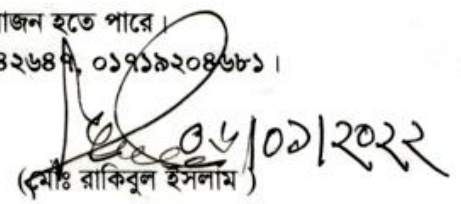 াজন হতে পারে।
৪২৬৪৭, ০১৭১৯২০৪৬৮১।
০৬/০১/২০২২
(মোঃ রাকিবুল ইসলাম )